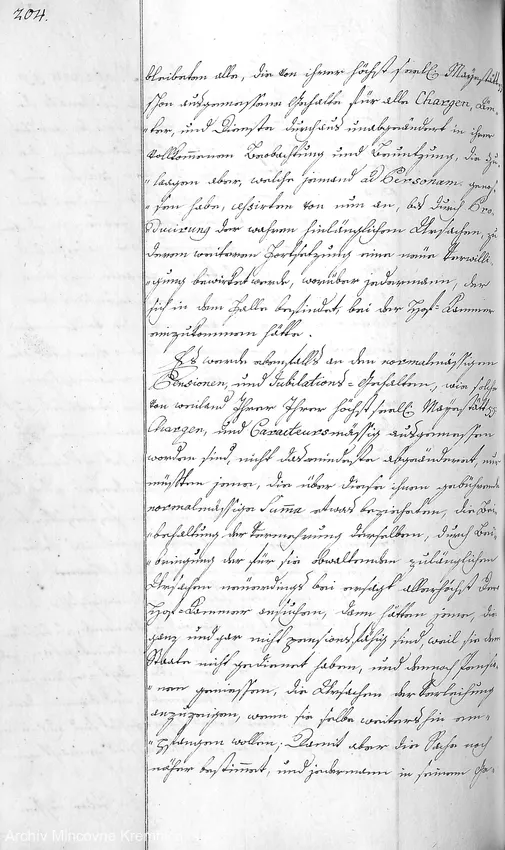 204.
bleibeten alle, die von ihrer höchst seel. Mayestätt
schon ausgemessene Gehalte für alle Chargen, Äm-
ter, und Dienste durchaus unabgeändert in ihrer
vollkommenen Beobachtung und Benutzung, die Zu-
laagen aber, welche jemand ad Personam genos-
sen habe, cessirten von nun an, bis durch Pro-
ducirung der wahren hinlänglichen Ursachen, zu
deren weiteren Fortsetzung eine neue Verwilli-
gung bewirket werde, worüber jedermann, der
sich in dem Falle befindet, bei der Hof-Kammer
einzukommen hätte.
Es werde ebenfalls an den normalmässigen
Pensionen, und Jubilations-Gehalten, wie solche
von weiland Ihrer höchst seel. Mayestätt
Chargen, und Caracteursmässig ausgemessen
worden sind, nicht das mindeste abgeänderet, nur
müssten jene, die über diese ihnen gebührende
normalmässige Summa etwas beziehen, die Bei-
behaltung der Vermehrung derselben, durch Bei-
bringung der für sie obwaltenden zulänglichen
Ursachen neuerdings bei ersagt allerhöchst der
Hof-Kammer ansuchen, dann hätten jene, die
ganz und gar nicht pensionsfähig sind, weil sie dem
Staate nicht gedienet haben, und dennoch Pensio-
nen geniessen, die Ursachen der Verleihung
anzuzeigen, wenn sie selbe weiters hin em-
pfangen wollen; Damit aber die Sache noch
näher bestimmet, und jedermann in seinem Ge-
Archiv Mincovne Kremnica